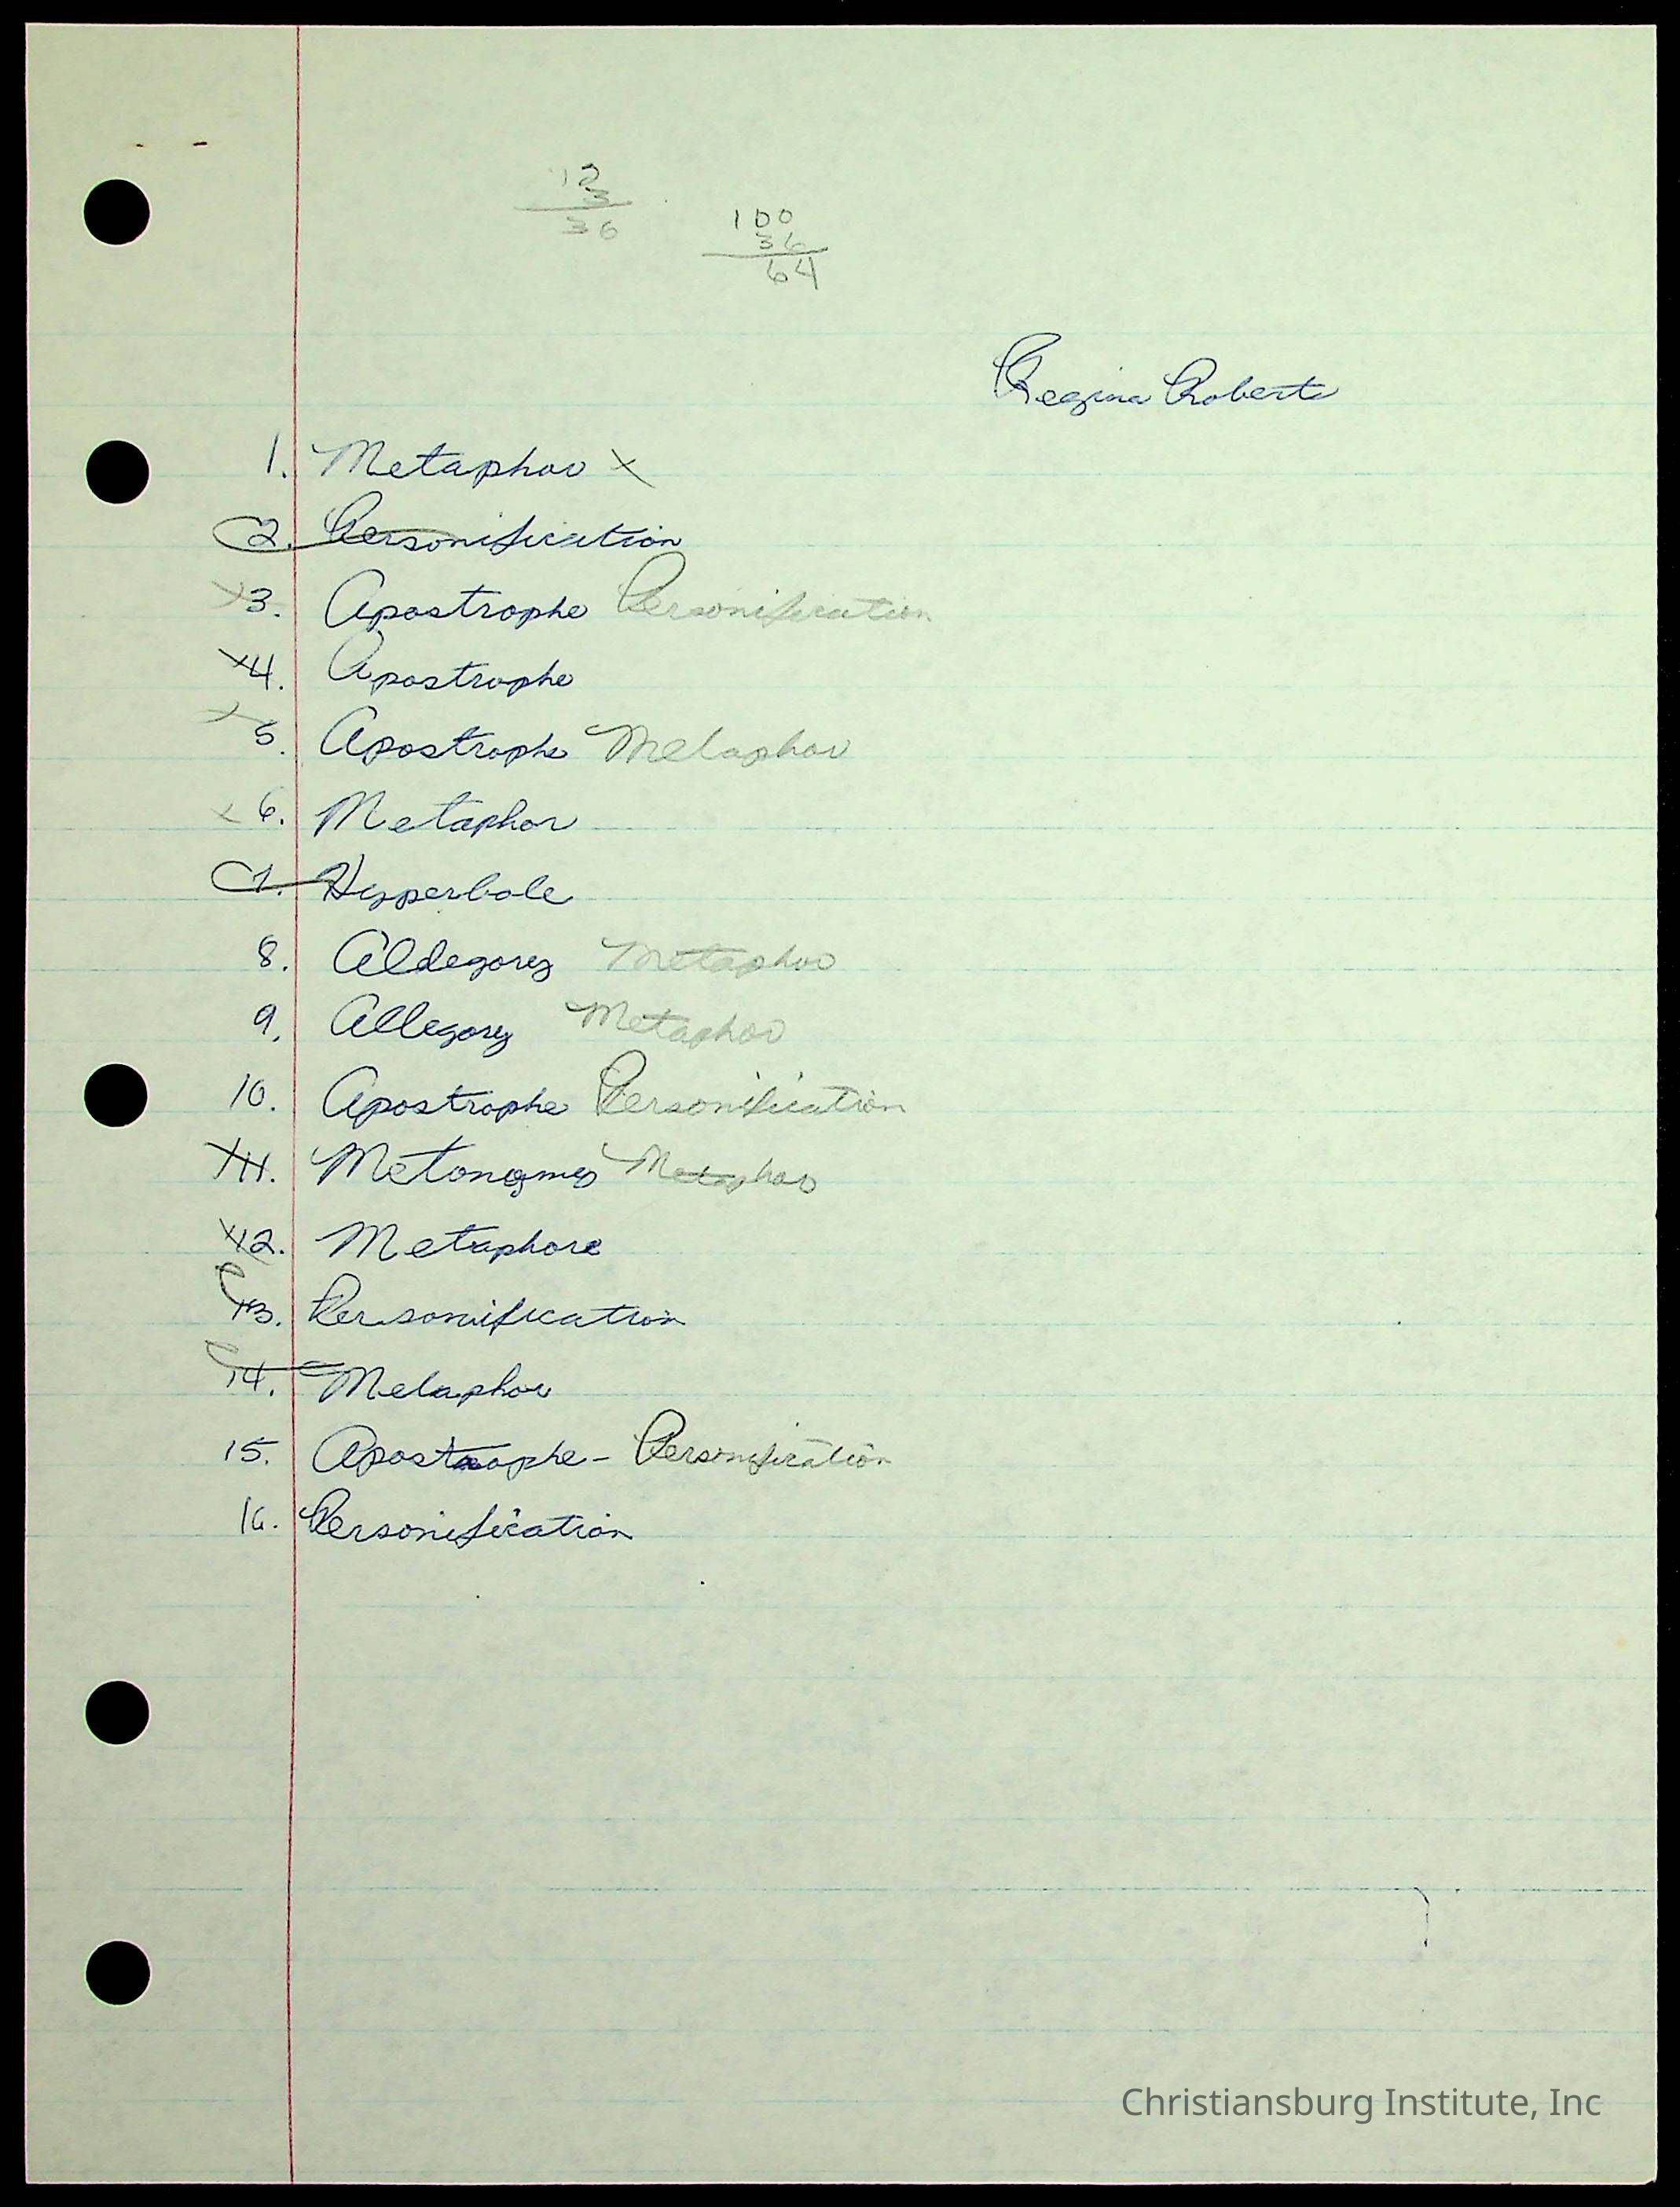 12
3
36
100
36
64
Regina Roberts
1. Metaphor X
2. Personification
X3. Apostrophe Personification
X4. Apostrophe
X5. Apostrophe Metaphor
X6. Metaphor
C7. Hyperbole
8. Aldegorey Metaphor
9. Allegory Metaphor
10. Apostrophe Personification
X11. Metonomy Metaphor
X12. Metaphore
C13. Personification
C14. Metaphor
15. Apostrophe - Personification
16. Personification
Christiansburg Institute, Inc